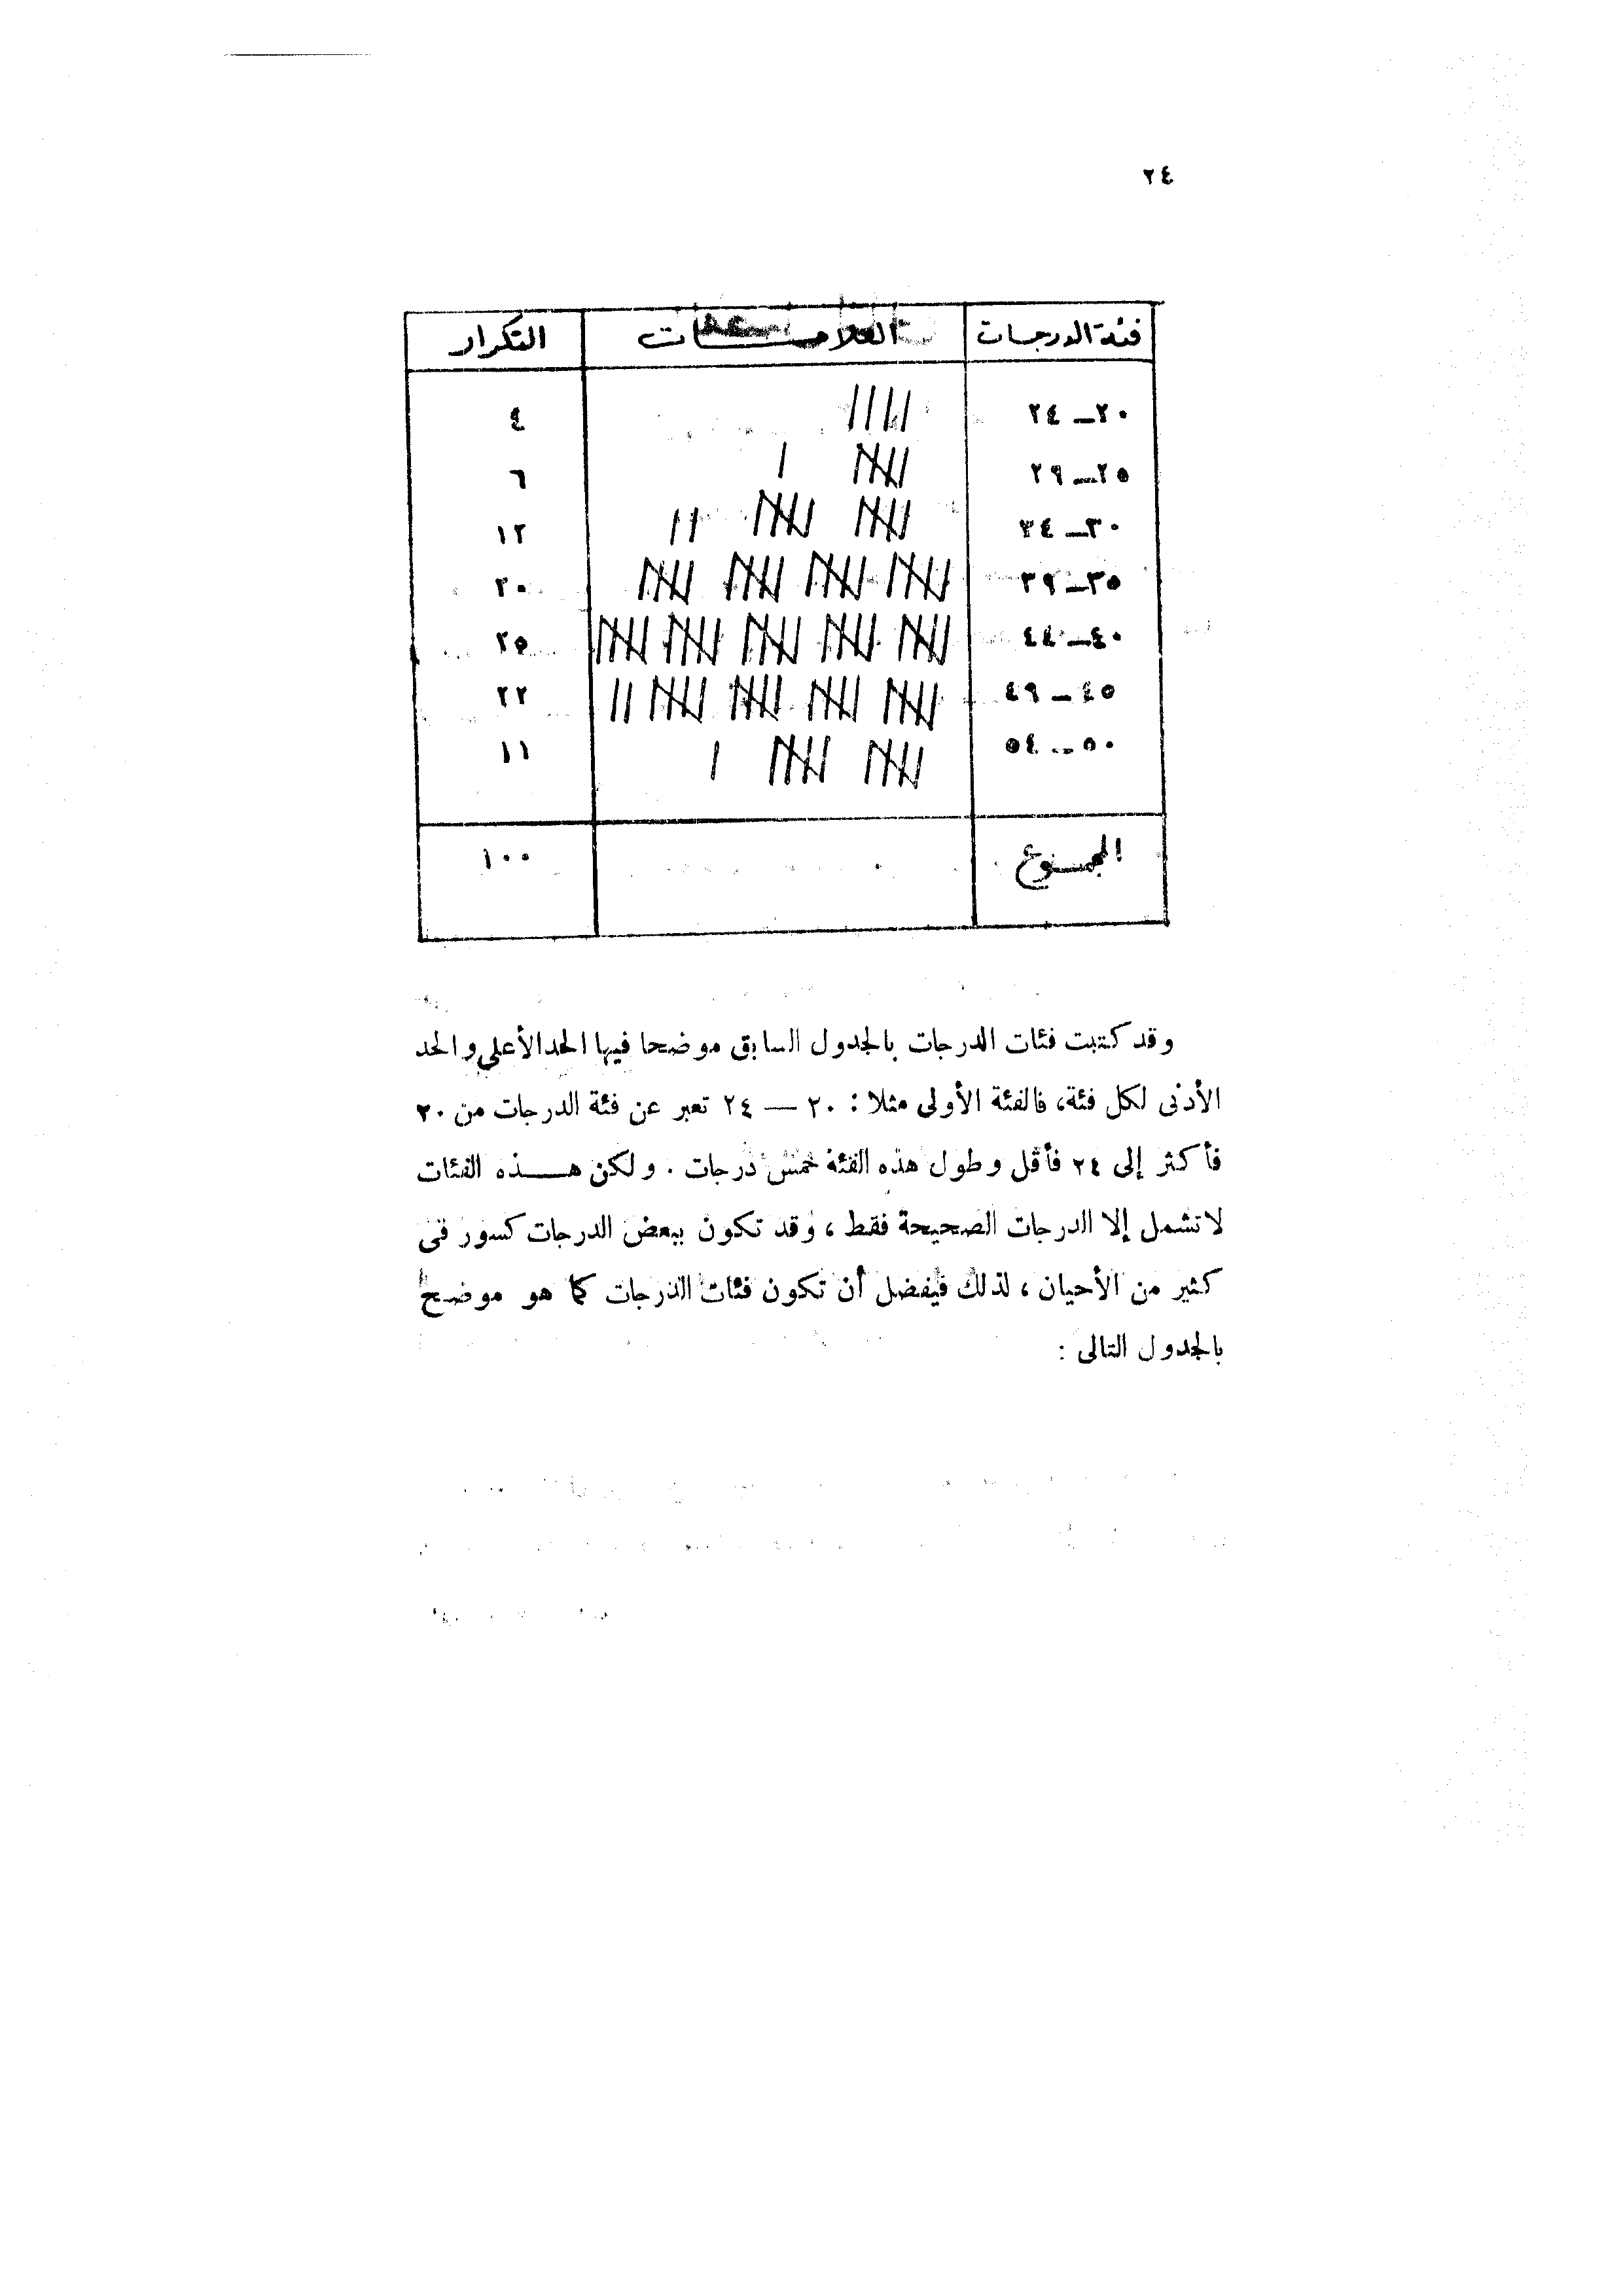 ٢٤
فئة الدرجات العلامات التكرار
٢٠ – ٢٤ //// ٤
٢٥ – ٢٩ //// / ٦
٣٠ – ٣٤ //// //// // ١٢
٣٥ – ٣٩ //// //// //// //// ٢٠
٤٠ – ٤٤ //// //// //// //// //// ٢٥
٤٥ – ٤٩ //// //// //// //// // ٢٢
٥٠ – ٥٤ //// //// / ١١
المجموع ١٠٠
وقد كتبت فئات الدرجات بالجدول السابق موضحا فيها الحد الأعلى والحد
الأدنى لكل فئة، فالفئة الأولى مثلا : ٢٠ — ٢٤ تعبر عن فئة الدرجات من ٢٠
فأكثر إلى ٢٤ فأقل وطول هذه الفئة خمس درجات . ولكن هـــذه الفئات
لا تشمل إلا الدرجات الصحيحة فقط ، وقد تكون ببعض الدرجات كسور فى
كثير من الأحيان ، لذلك فيفضل أن تكون فئات الدرجات كما هو موضح
بالجدول التالى :